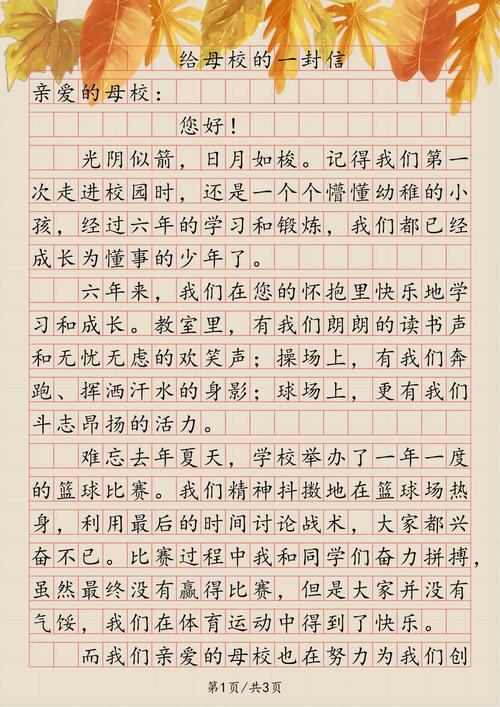 给母校的一封信
亲爱的母校：
您好！
光阴似箭，日月如梭。记得我们第一
次走进校园时，还是一个个懵懂幼稚的小
孩，经过六年的学习和锻炼，我们都已经
成长为懂事的少年了。
六年来，我们在您的怀抱里快乐地学
习和成长。教室里，有我们朗朗的读书声
和无忧无虑的欢笑声；操场上，有我们奔
跑、挥洒汗水的身影；球场上，更有我们
斗志昂扬的活力。
难忘去年夏天，学校举办了一年一度
的篮球比赛。我们精神抖擞地在篮球场热
身，利用最后的时间讨论战术，大家都兴
奋不已。比赛过程中我和同学们奋力拼搏，
虽然最终没有赢得比赛，但是大家并没有
气馁，我们在体育运动中得到了快乐。
而我们亲爱的母校也在努力为我们创
第1页/共3页